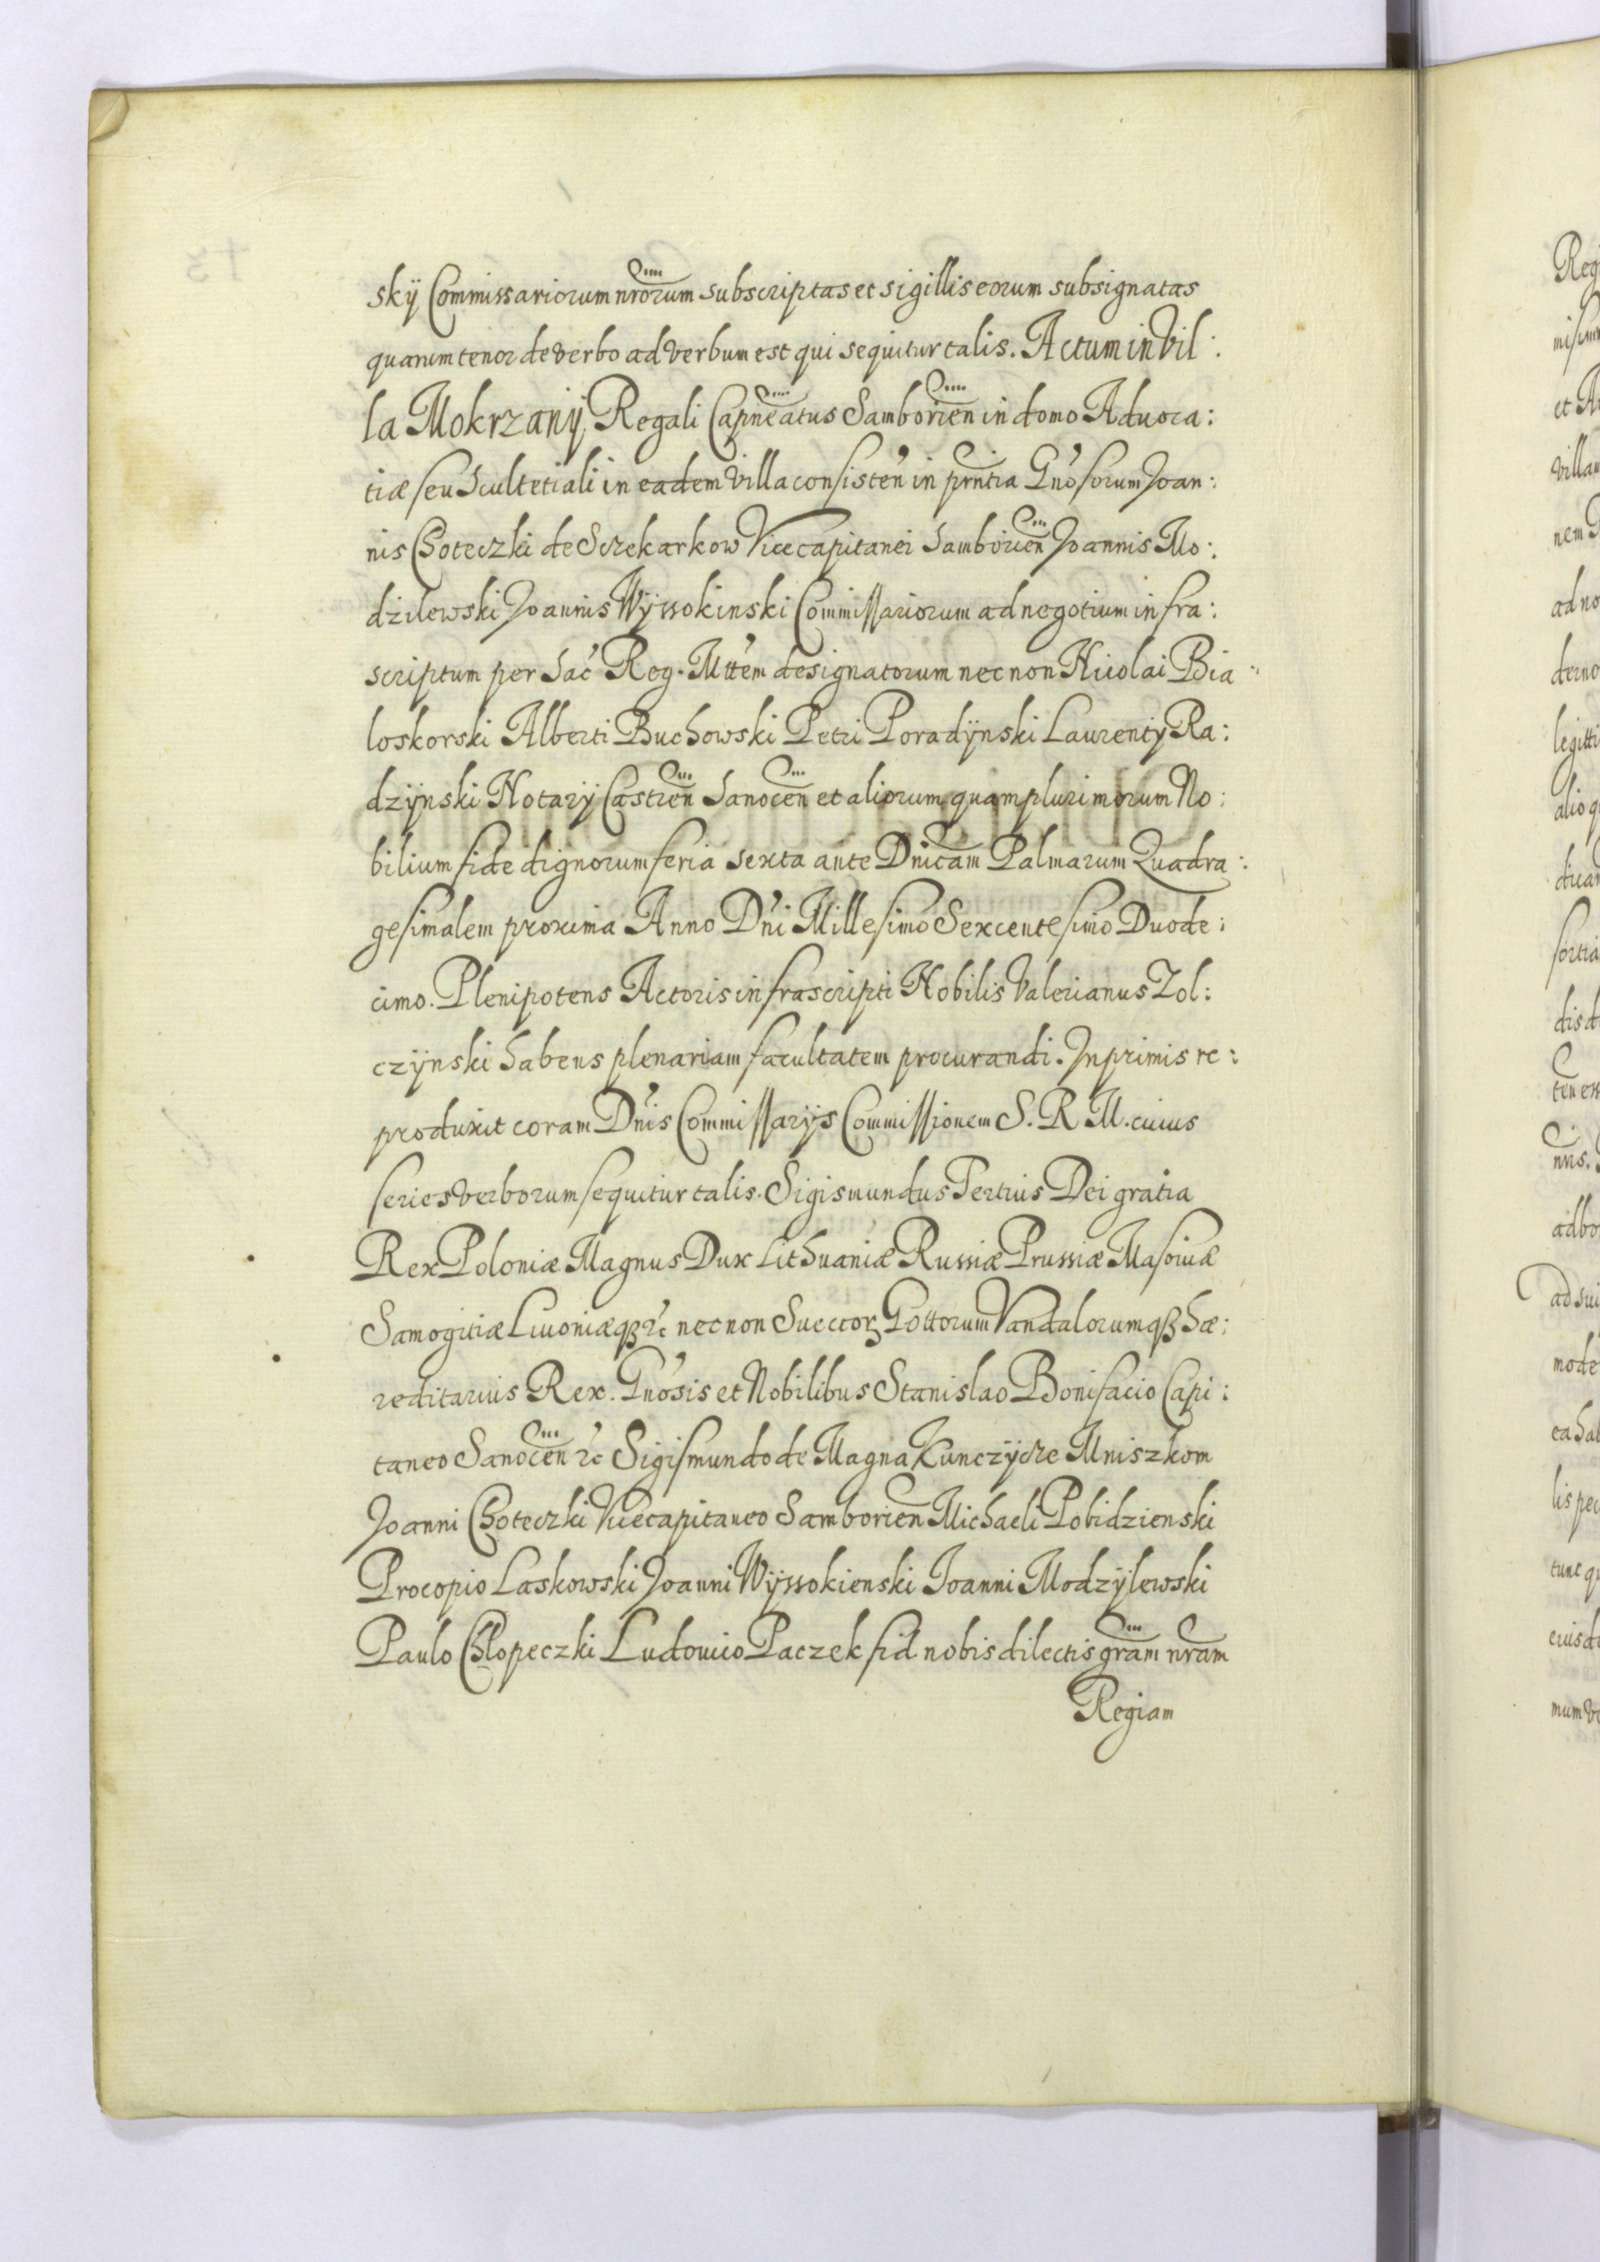 skÿ Commissariorum nrorum subscriptas et sigillis eorum subsignatas
quarum tenor de verbo ad verbum est qui sequitur talis. Actum in Vil:
la Mokrzanÿ Regali Capneatus Samborien in domo Aduoca:
tiæ seu Scultetiali in eadem Villa consisten in prntia Gnosorum Joan:
nis Choteczki de Screkarkow Vicecapitanei Samborien Joannis Mo:
dzilewski Joannis Wÿssokinski Commissariorum ad negotium infra:
scriptum per Sac Reg. Mttem designatorum necnon Nicolai Bia:
loskorski Alberti Buchowski Petri Poradÿnski Laurentÿ Ra:
dzÿnski Notarÿ Castren Sanocen et aliorum quamplurimorum No:
bilium fide dignorum feria sexta ante Dnicam Palmarum Quadra:
gesimalem proxima Anno Dni Millesimo Sexcentesimo Duode:
cimo. Plenipotens Actoris infrascripti Nobilis Valerianus Zol:
czÿnski habens plenariam facultatem procurandi. Inprimis re:
produxit coram Dnis Commissarÿs Commissionem S. R. M. cuius
series verborum sequitur talis. Sigismundus Tertius Dei gratia
Rex Poloniæ Magnus Dux Lithuaniæ Russiæ Prussiæ Masouiæ
Samogitiæ Liuoniæqȝ &c necnon Suecorꝝ Gottorum Vandalorumqȝ hæ:
reditarius Rex. Gnosis et Nobilibus Stanislao Bonifacio Capi:
taneo Sanocen &c Sigismundo de Magna Kunczÿcze Mniszkom
Joanni Choteczki Vicecapitaneo Samborien Michaeli Pobidzienski
Procopio Laskowski Joanni Wÿssokienski Joanni Modzÿlewski
Paulo Chlopeczki Ludouico Paczek fid nobis dilectis gram nram
Regiam